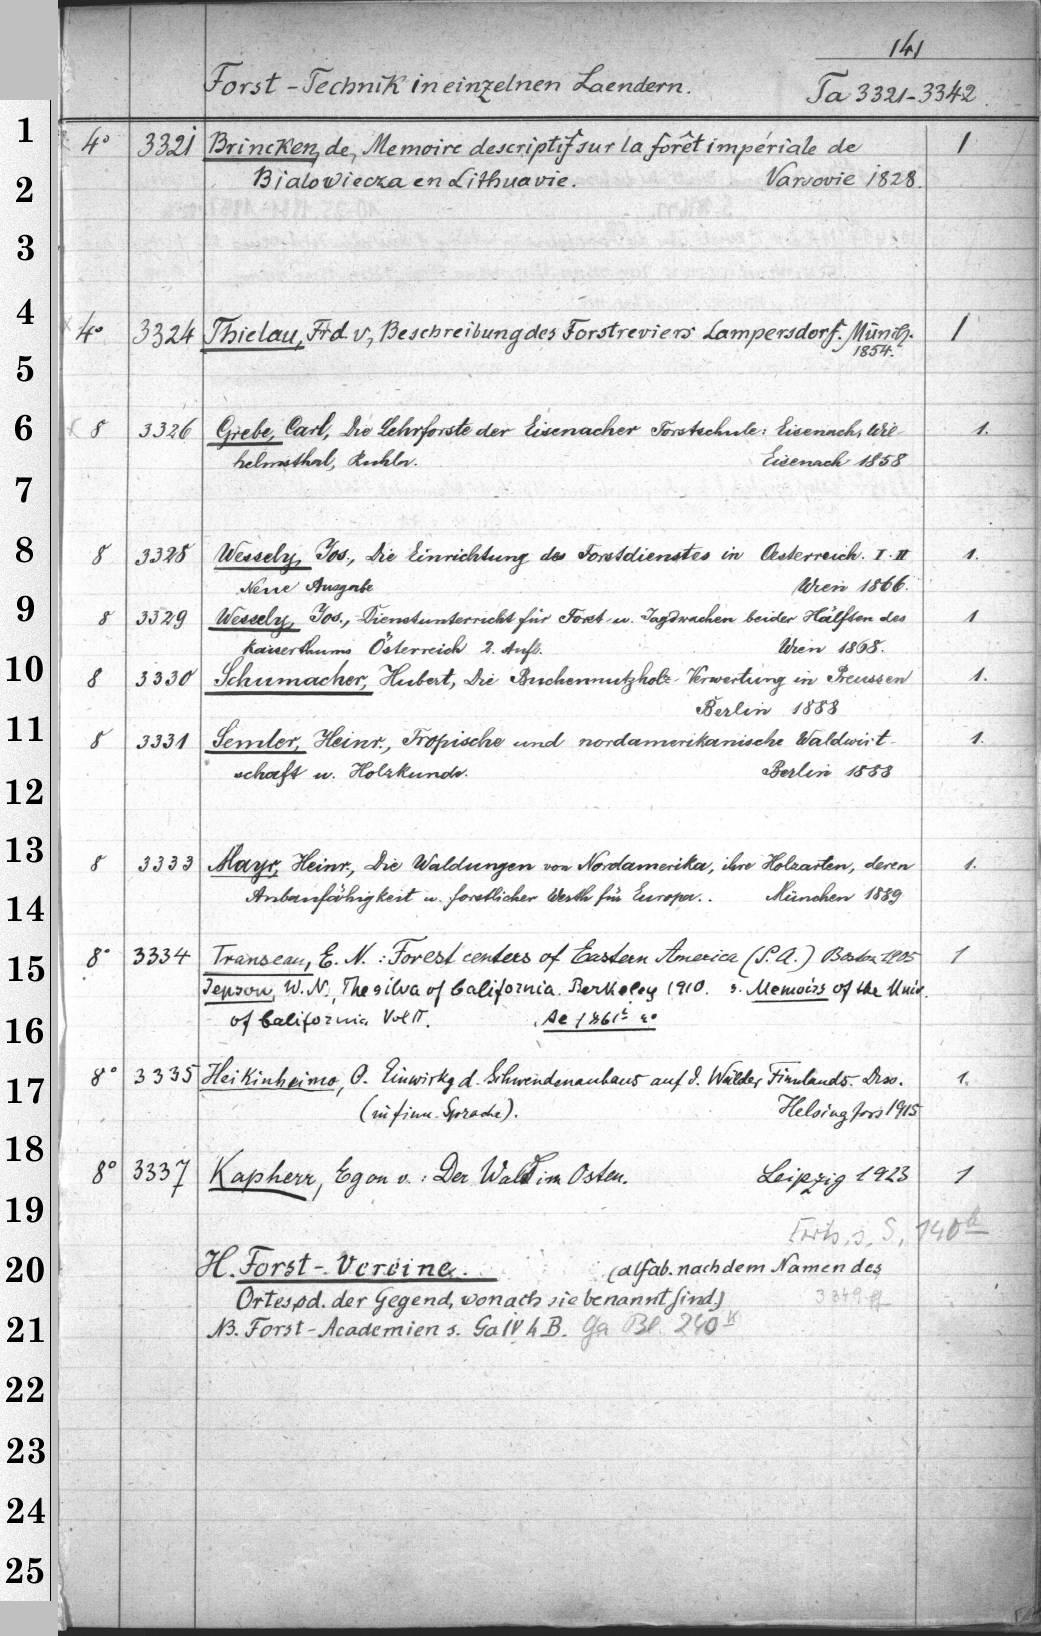 141
Forst-Technik in einzelnen Laendern. Ta 3321-3342
1
4° 3321 Brincken, de, Memoire descriptif sur la forêt impériale de 1
2
Bialowiecza en Lithuavie. Varsovie 1828.
3
4
4° 3324 Thielau, Frd. v., Beschreibung des Forstreviers Lampersdorf. Münch. 1
1854.
5
6
8 3326 Grebe, Carl, Die Lehrforste der Eisenacher Forstschule: Eisenach, Wil- 1.
helmsthal, Ruhla. Eisenach 1858
7
8
8 3328 Wessely, Jos., Die Einrichtung des Forstdienstes in Oesterreich. I-II 1.
Neue Ausgabe Wien 1866.
9
8 3329 Wessely, Jos., Dienstunterricht für Forst- u. Jagdwachen beider Hälften des 1
Kaiserthums Österreich 2. Aufl. Wien 1868.
10
8 3330 Schumacher, Hubert, Die Buchennutzholz-Verwertung in Preussen 1.
Berlin 1888
11
8 3331 Semler, Heinr., Tropische und nordamerikanische Waldwirt- 1.
schaft u. Holzkunde. Berlin 1888
12
13
8 3333 Mayr, Heinr., Die Waldungen von Nordamerika, ihre Holzarten, deren 1.
Anbaufähigkeit u. forstlicher Werth für Europa.. München 1889
14
15
8° 3334 Transeau, E. N.: Forest centers of Eastern America (S.A.) Boston 1905 1
Jepson, W. N., The silva of California. Berkeley 1910. s. Memoirs of the Univ.
16
of California Vol II. Ae 4°
17
8° 3335 Heikinheimo, O. Einwirkg d. Schwendenanbaus auf d. Wälder Finnlands. Diss. 1.
(in finn. Sprache). Helsingfors 1915
18
8° 3337 Kapherr, Egon v.: Der Wald im Osten. Leipzig 1923 1
19
Forts. s. S. 140
20
H. Forst-Vereine. (alfab. nach dem Namen des
Ortes od. der Gegend, wonach sie benannt sind) 3349 ff
21
NB. Forst-Academien s. Ga IV h B. Ga Bl. 240
22
23
24
25